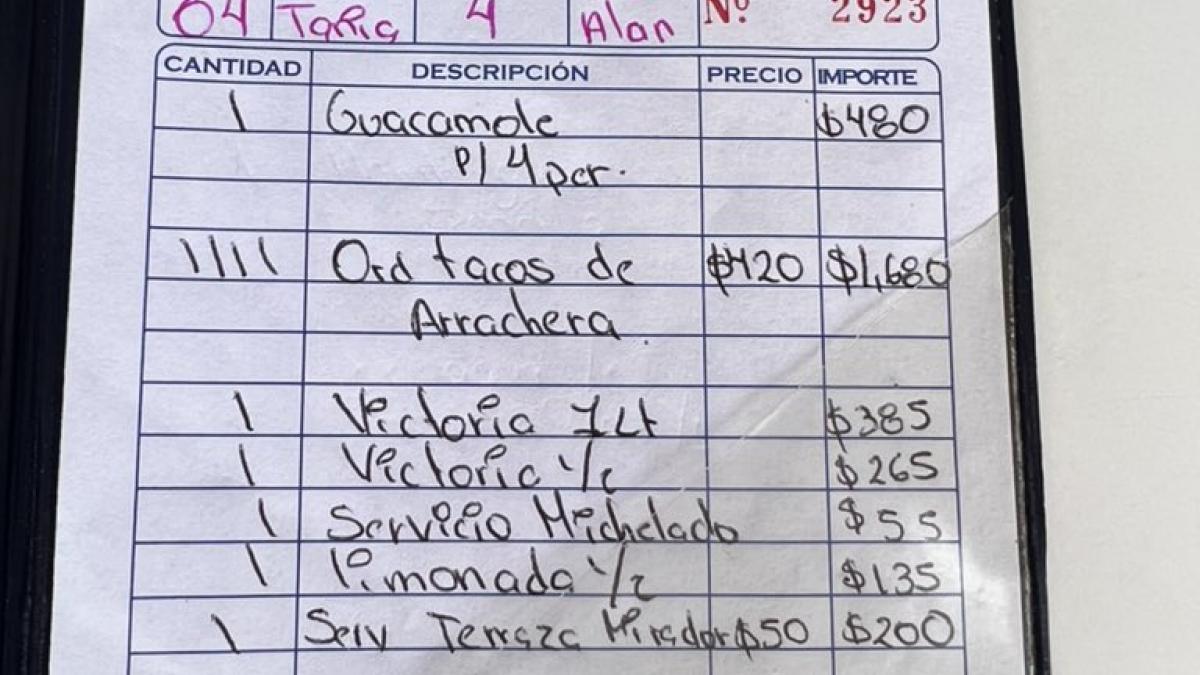 04 Tania 4 Alan Nº 2923
CANTIDAD DESCRIPCIÓN PRECIO IMPORTE
1 Guacamole $480
p/ 4 per.
1111 Ord tacos de $420 $1,680
Arrachera.
1 Victoria 1Lt $385
1 Victoria 1/2 $265
1 Servicio Michelado $55
1 limonada 1/2 $135
1 Serv Terraza Mirador $50 $200